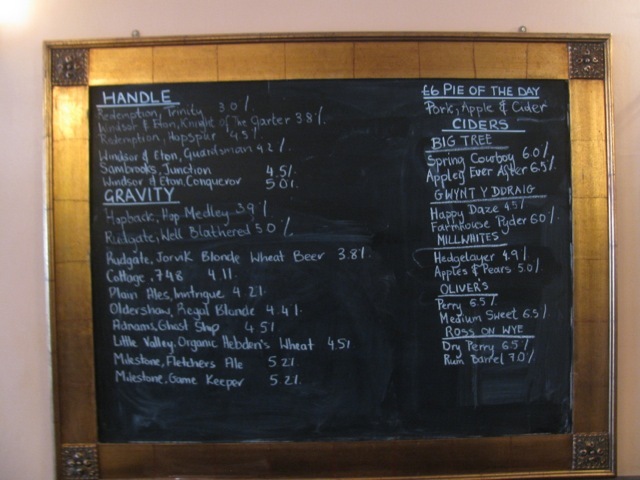 HANDLE
Redemption, Trinity 3.0%
Windsor & Eton, Knight of The Garter 3.8%
Redemption, Hopspur 4.5%
Windsor & Eton, Guardsman 4.2%
Sambrooks, Junction 4.5%
Windsor & Eton, Conqueror 5.0%
GRAVITY
Hopback, Hop Medley 3.9%
Rudgate, Well Blathered 5.0%
Rudgate, Jorvik Blonde Wheat Beer 3.8%
Cottage, 748 4.1%
Plain Ales, Inntrigue 4.2%
Oldershaw, Regal Blonde 4.4%
Adnams, Ghost Ship 4.5%
Little Valley, Organic Hebden's Wheat 4.5%
Milestone, Fletchers Ale 5.2%
Milestone, Game Keeper 5.2%
£6 PIE OF THE DAY
Pork, Apple & Cider
CIDERS
BIG TREE
Spring Cowboy 6.0%
Appley Ever After 6.5%
GWYNT Y DDRAIG
Happy Daze 4.5%
Farmhouse Pyder 6.0%
MILLWHITES
Hedgelayer 4.9%
Apples & Pears 5.0%
OLIVER'S
Perry 6.5%
Medium Sweet 6.5%
ROSS ON WYE
Dry Perry 6.5%
Rum Barrel 7.0%